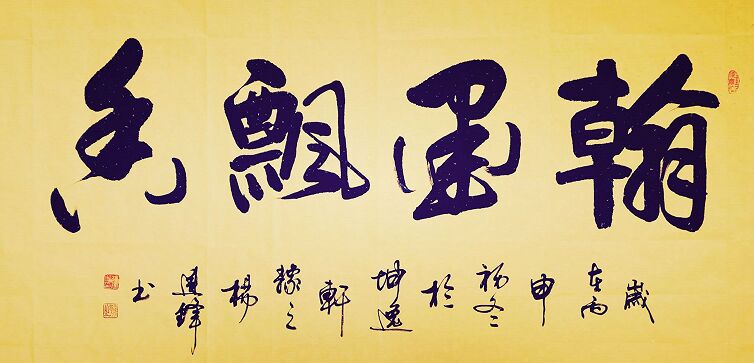 翰墨飘香
歲在丙申初冬於坤逸軒 之楊連鋒书